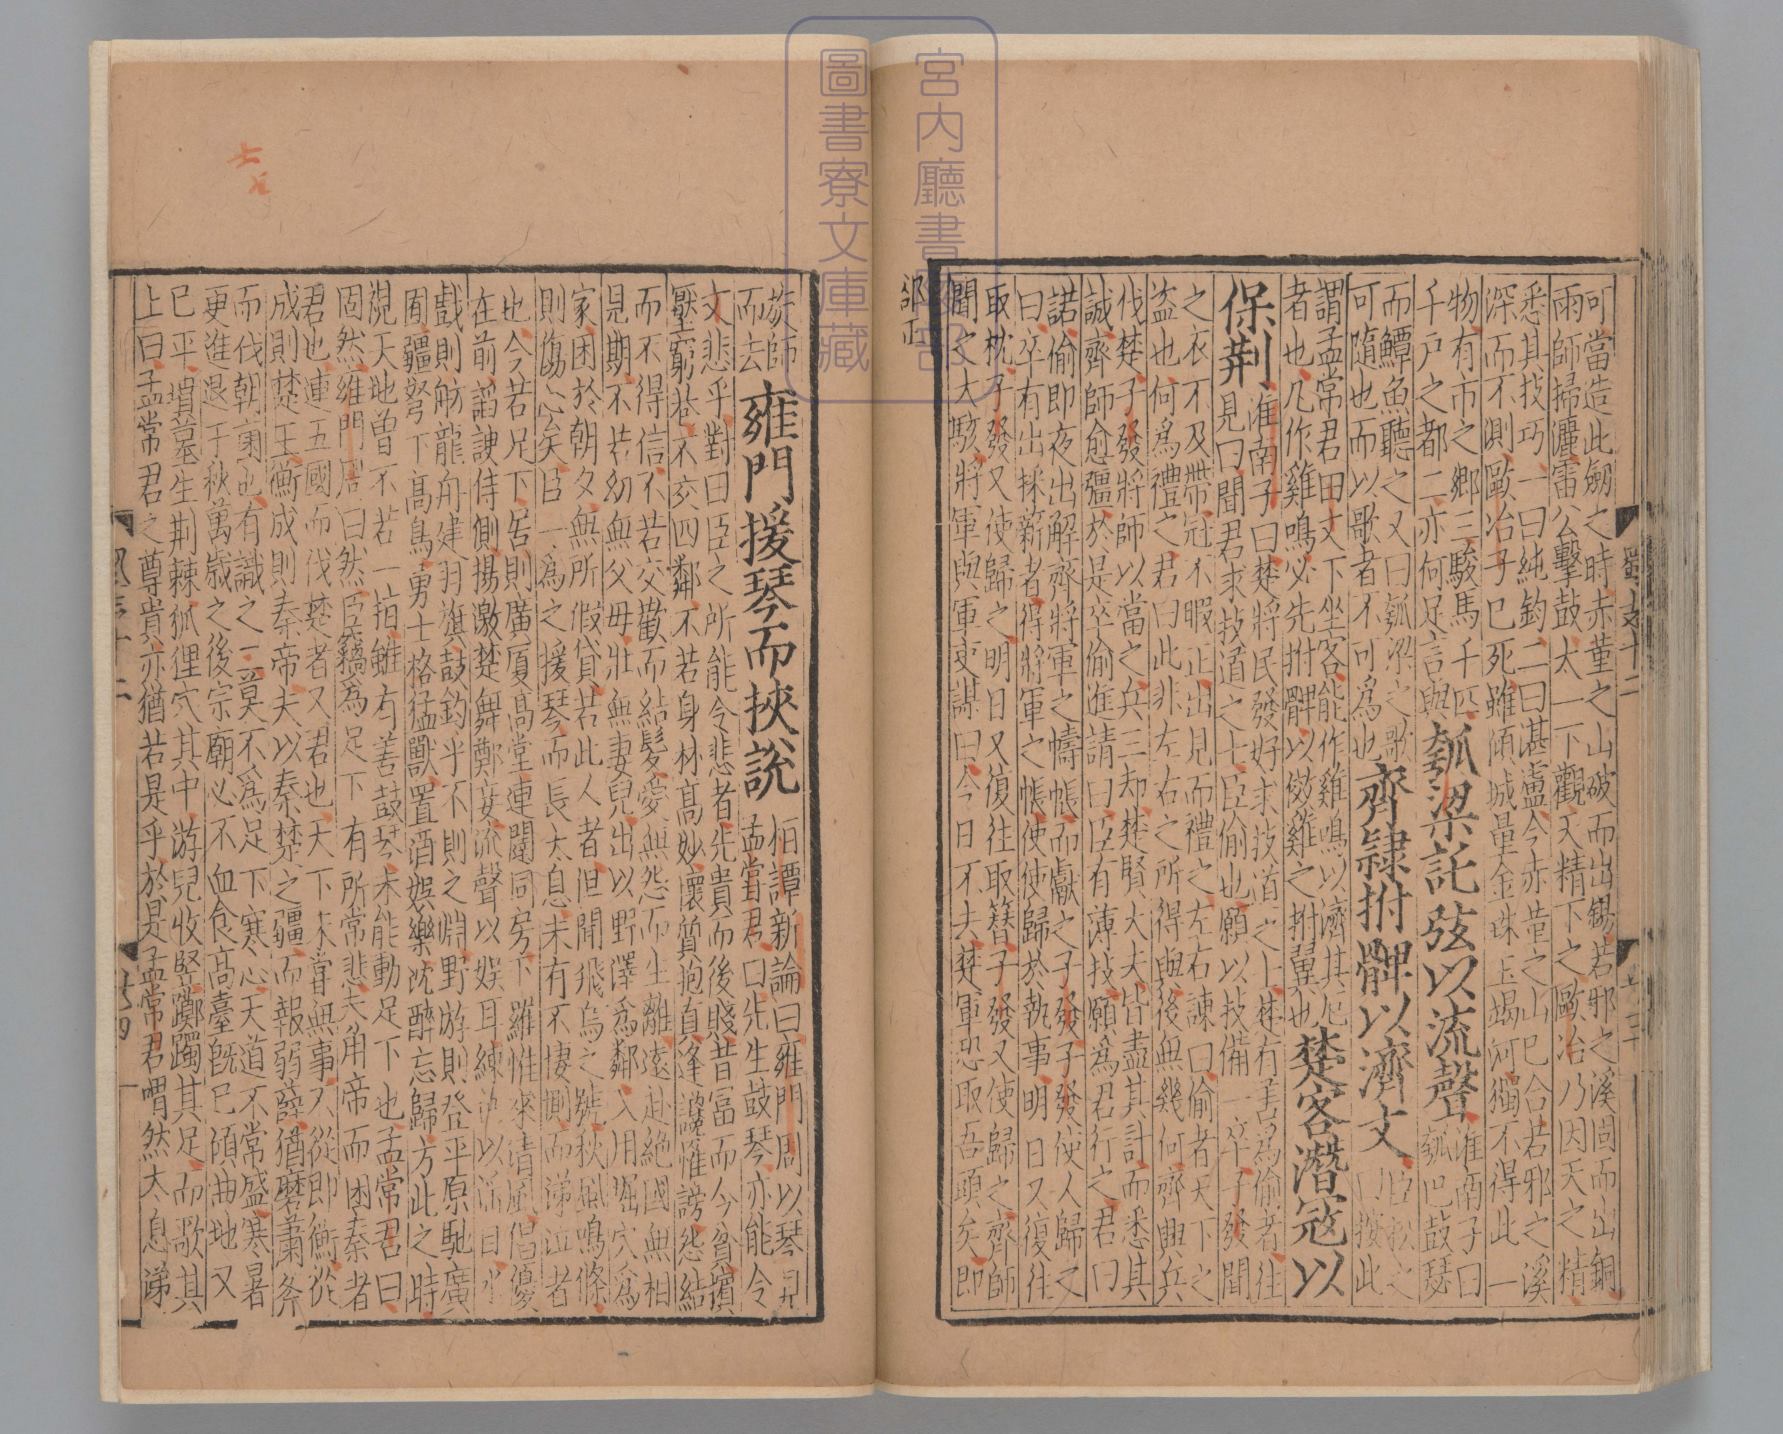 可當造此劒之時赤菫之山破而出錫若邪之溪固而出銅
雨師掃灑雷公擊鼓太一下觀天精下之歐冶乃因天之精
悉其技巧一曰純鈞二曰湛盧今赤菫之山巳合若邪之溪
深而不測歐冶子巳死雖傾城量金珠玉竭河獨不得此一
物有市之鄉三駿馬千匹
千戶之都二亦何足言與
瓠梁託弦以流聲
淮南子曰
瓠巴鼓瑟
而鱏魚聽之又曰瓠梁之歌
可隨也而以歌者不可爲也
齊隷拊髀以濟文
臣松之
曰按此
謂孟常君田文下坐客能作雞鳴以濟其厄
者也凡作雞鳴必先拊髀以傚雞之拊翼也
楚客潛寇以
保荆
淮南子曰楚將民發好求技道之士楚有善爲偷者往
見曰聞君求技道之士臣偷也願以技備一卒子發聞
之衣不及帶冠不暇正出見而禮之左右諫曰偷者天下之
盜也何爲禮之君曰此非左右之所得與後無幾何齊興兵
伐楚子發將師以當之兵三却楚賢大夫皆盡其計而悉其
誠齊師愈彊於是卒偷進請曰臣有薄技願爲君行之君曰
諾偷即夜出解齊將軍之幬帳而獻之子發子發使人歸之
曰卒有出採薪者得將軍之帳使使歸於執事明日又復往
取枕子發又使歸之明日又復往取簪子發又使歸之齊師
聞之大駭將軍與軍吏謀曰今日不去楚軍恐取吾頭矣即
郤正
旋師
而去
雍門援琴而挾說
桓譚新論曰雍門周以琴見
孟嘗君曰先生鼓琴亦能令
文悲乎對曰臣之所能令悲者先貴而後賤昔富而今貧擯
壓窮巷不交四鄰不若身材高妙懷質抱眞逢讒罹謗怨結
而不得信不若交歡而結髮愛無怨而生離遠赴絶國無相
見期不若幼無父母壯無妻兒出以野澤爲鄰入用堀穴爲
家困於朝夕無所假貸若此人者但聞飛烏之號秋風鳴條
則傷心矣臣一爲之援琴而長太息未有不悽惻而涕泣者
也今若足下居則廣厦高堂連闥洞房下羅帷來清風倡優
在前諂諛侍側揚激楚舞鄭妾流聲以娛耳練色以淫目水
戲則舫龍舟建羽旗鼓釣乎不測之淵野游則登平原馳廣
囿彊弩下高鳥勇士格猛獸置酒娛樂沈醉忘歸方此之時
視天地曾不若一指雖有善鼓琴未能動足下也孟常君曰
固然雍門周曰然臣竊爲足下有所常悲夫角帝而困秦者
君也連五國而伐楚者又君也天下未嘗無事不從即衡從
成則楚王衡成則秦帝夫以秦楚之彊而報弱薛猶磨蕭斧
而伐朝菌也有識之士莫不爲足下寒心天道不常盛寒暑
更進退千秋萬歲之後宗廟必不血食高臺旣巳傾曲池又
巳平墳墓生荆棘狐狸穴其中游兒牧豎躑躅其足而歌其
上曰孟常君之尊貴亦猶若是乎於是孟常君喟然太息涕
宮內廳書陵部
圖書寮文庫藏